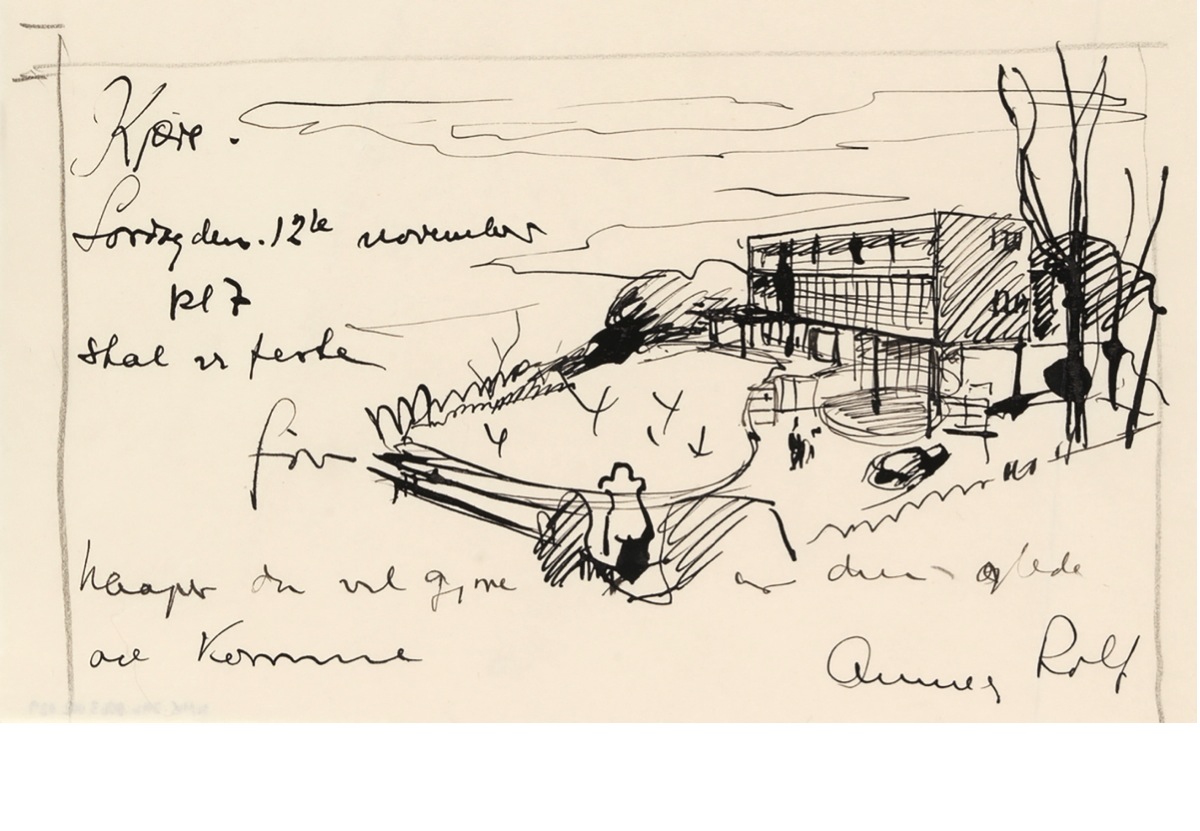 Kjære.
Lørdag den. 12te november
kl 7
skal vi feste
for
haaper du vil gjøre os den glede
aa komme
Rolf